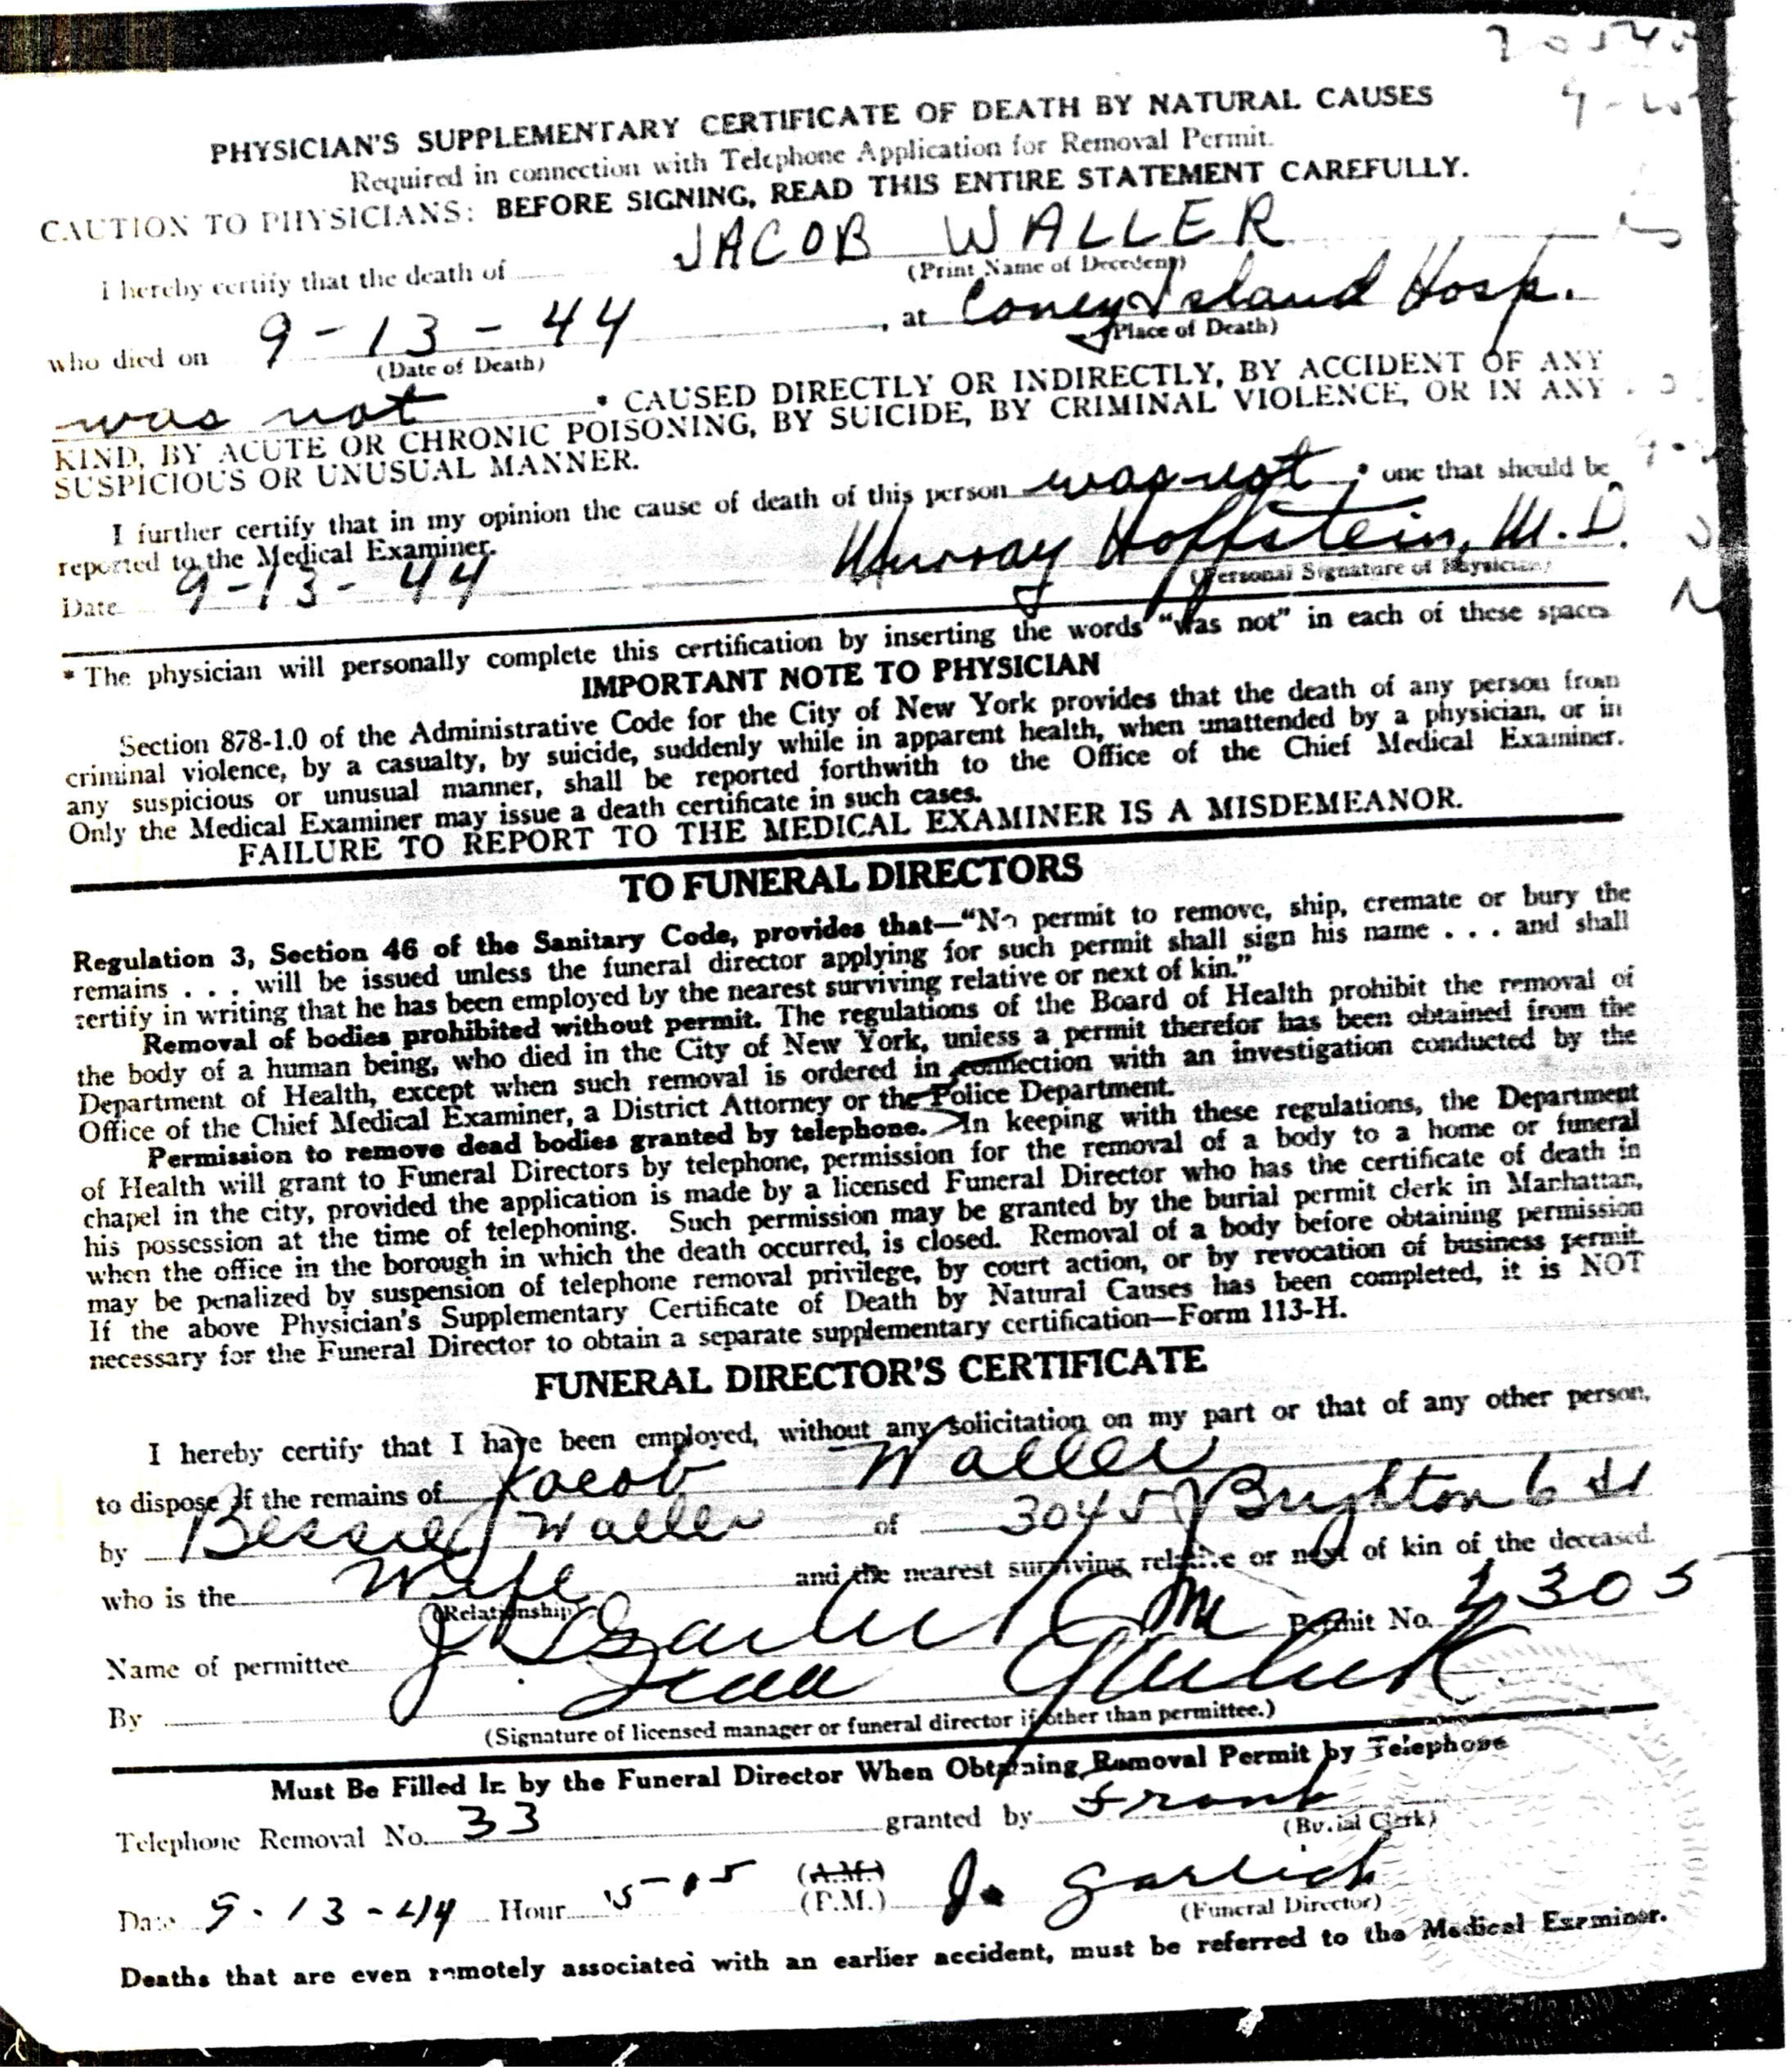 PHYSICIAN'S SUPPLEMENTARY CERTIFICATE OF DEATH BY NATURAL CAUSES
Required in connection with Telephone Application for Removal Permit.
CAUTION TO PHYSICIANS: BEFORE SIGNING, READ THIS ENTIRE STATEMENT CAREFULLY.
I hereby certify that the death of JACOB WALLER
(Print Name of Decedent)
who died on 9-13-44, at Coney Island Hosp.
(Date of Death) (Place of Death)
was not * CAUSED DIRECTLY OR INDIRECTLY, BY ACCIDENT OF ANY
KIND, BY ACUTE OR CHRONIC POISONING, BY SUICIDE, BY CRIMINAL VIOLENCE, OR IN ANY
SUSPICIOUS OR UNUSUAL MANNER.
I further certify that in my opinion the cause of death of this person was not * one that should be
reported to the Medical Examiner.
Date 9-13-44 Murray Hoffstein, M.D.
(Personal Signature of Physician)
* The physician will personally complete this certification by inserting the words "was not" in each of these spaces
IMPORTANT NOTE TO PHYSICIAN
Section 878-1.0 of the Administrative Code for the City of New York provides that the death of any person from
criminal violence, by a casualty, by suicide, suddenly while in apparent health, when unattended by a physician, or in
any suspicious or unusual manner, shall be reported forthwith to the Office of the Chief Medical Examiner.
Only the Medical Examiner may issue a death certificate in such cases.
FAILURE TO REPORT TO THE MEDICAL EXAMINER IS A MISDEMEANOR.
TO FUNERAL DIRECTORS
Regulation 3, Section 46 of the Sanitary Code, provides that—"No permit to remove, ship, cremate or bury the
remains . . . will be issued unless the funeral director applying for such permit shall sign his name . . . and shall
certify in writing that he has been employed by the nearest surviving relative or next of kin."
Removal of bodies prohibited without permit. The regulations of the Board of Health prohibit the removal of
the body of a human being, who died in the City of New York, unless a permit therefor has been obtained from the
Department of Health, except when such removal is ordered in connection with an investigation conducted by the
Office of the Chief Medical Examiner, a District Attorney or the Police Department.
Permission to remove dead bodies granted by telephone. In keeping with these regulations, the Department
of Health will grant to Funeral Directors by telephone, permission for the removal of a body to a home or funeral
chapel in the city, provided the application is made by a licensed Funeral Director who has the certificate of death in
his possession at the time of telephoning. Such permission may be granted by the burial permit clerk in Manhattan,
when the office in the borough in which the death occurred, is closed. Removal of a body before obtaining permission
may be penalized by suspension of telephone removal privilege, by court action, or by revocation of business permit.
If the above Physician's Supplementary Certificate of Death by Natural Causes has been completed, it is NOT
necessary for the Funeral Director to obtain a separate supplementary certification—Form 113-H.
FUNERAL DIRECTOR'S CERTIFICATE
I hereby certify that I have been employed, without any solicitation on my part or that of any other person,
to dispose of the remains of Jacob Waller
by Bessie Waller of 3045 Brighton 6 St
who is the Wife and the nearest surviving relative or next of kin of the deceased.
(Relationship)
Name of permittee J. Permit No. 1305
By
(Signature of licensed manager or funeral director if other than permittee.)
Must Be Filled In by the Funeral Director When Obtaining Removal Permit by Telephone
Telephone Removal No. 33 granted by Frank
(Burial Clerk)
Date 9-13-44 Hour 5-15 (A.M.) (P.M.) J. Garlick
(Funeral Director)
Deaths that are even remotely associated with an earlier accident, must be referred to the Medical Examiner.